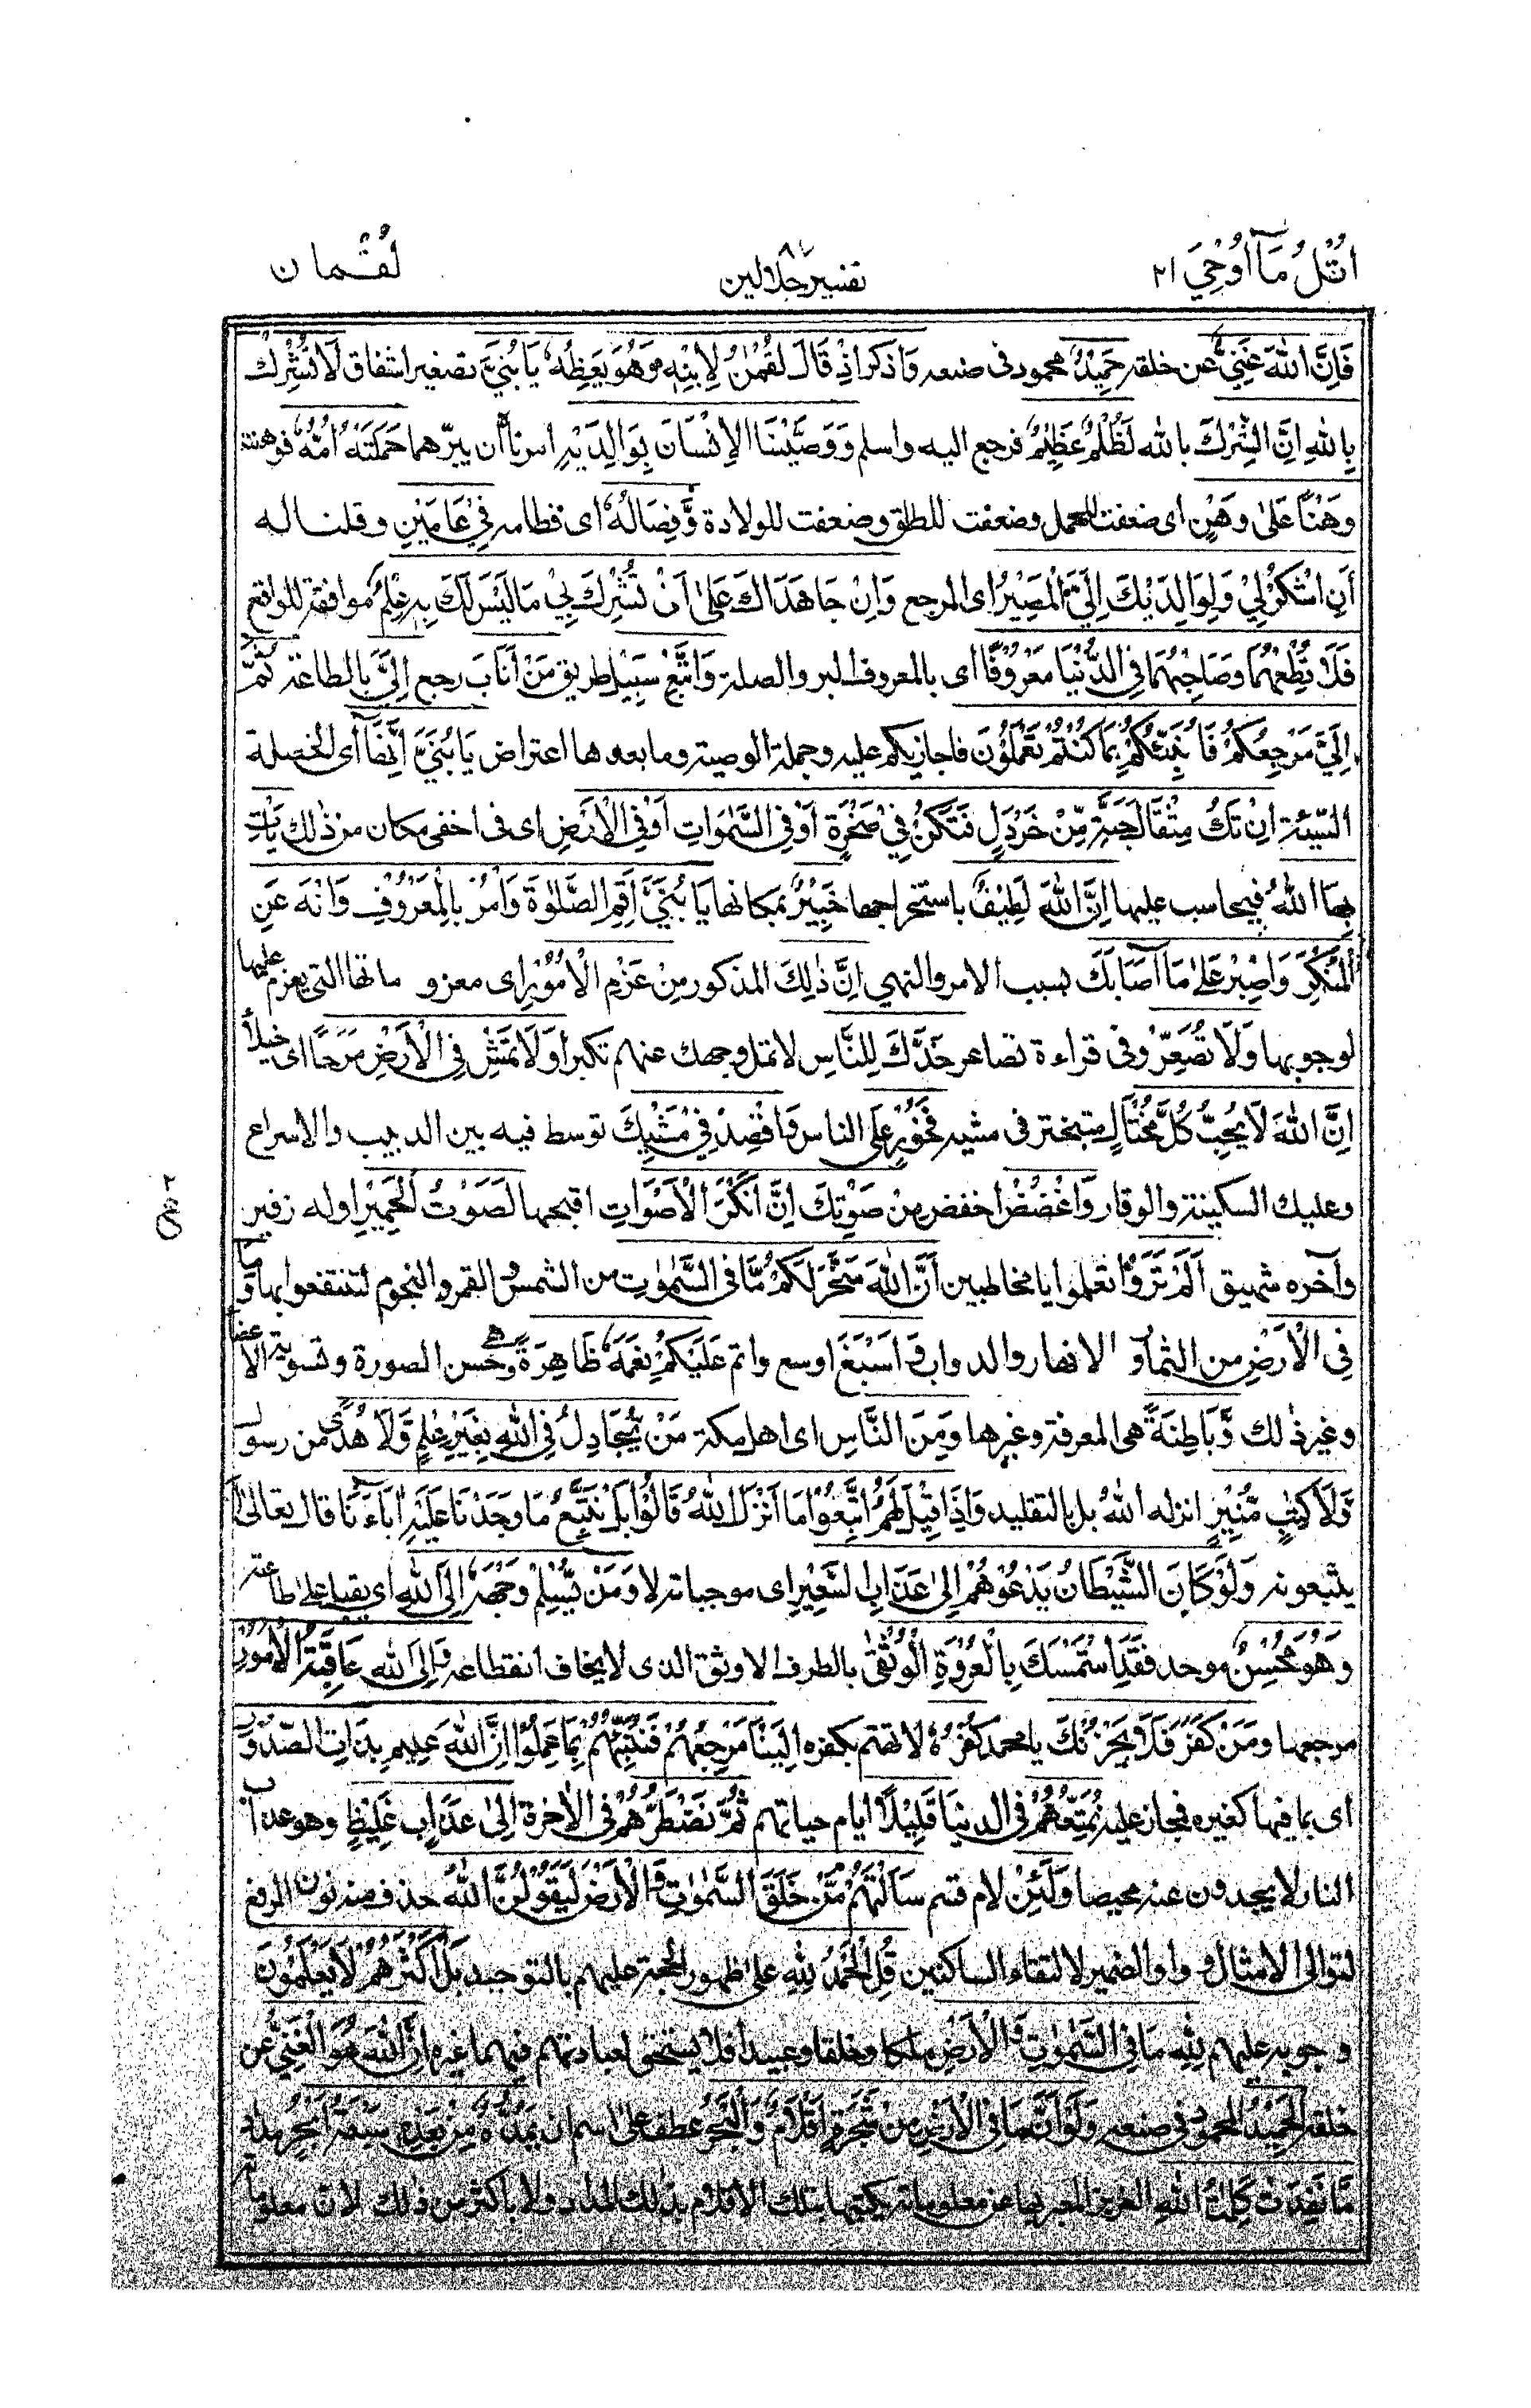 اُتْلُ مَآ اُوْحِيَ ٢١
٨٧
تفسير جلالين
لُقْمان
فَاِنَّ اللّٰهَ غَنِيٌّ عن خلقه حَمِيْدٌ محمود فى صنعه وَ اذكر اِذْ قَالَ لُقْمٰنُ لِابْنِهٖ وَهُوَ يَعِظُهٗ يَا بُنَيَّ تصغير اشفاق لَا تُشْرِكْ
بِاللّٰهِ اِنَّ الشِّرْكَ بالله لَظُلْمٌ عَظِيْمٌ فرجع اليه واسلم وَوَصَّيْنَا الْاِنْسَانَ بِوَالِدَيْهِ امرناه ان يبرّهما حَمَلَتْهُ اُمُّهٗ فوهنت
وَهْنًا عَلٰى وَهْنٍ اى ضعفت للحمل وضعفت للطلق وضعفت للولادة وَّفِصَالُهٗ اى فطامه فِيْ عَامَيْنِ وقلنا له
اَنِ اشْكُرْ لِيْ وَلِوَالِدَيْكَ اِلَيَّ الْمَصِيْرُ اى المرجع وَاِنْ جَاهَدَاكَ عَلٰى اَنْ تُشْرِكَ بِيْ مَا لَيْسَ لَكَ بِهٖ عِلْمٌ موافقة للواقع
فَلَا تُطِعْهُمَا وَصَاحِبْهُمَا فِي الدُّنْيَا مَعْرُوْفًا اى بالمعروف البر والصلة وَاتَّبِعْ سَبِيْلَ طريق مَنْ اَنَابَ رجع اِلَيَّ بالطاعة ثُمَّ
اِلَيَّ مَرْجِعُكُمْ فَاُنَبِّئُكُمْ بِمَا كُنْتُمْ تَعْمَلُوْنَ فاجازيكم عليه وجملة الوصية وما بعدها اعتراض يَا بُنَيَّ اِنَّهَا اى الخصلة
السّيئة اِنْ تَكُ مِثْقَالَ حَبَّةٍ مِّنْ خَرْدَلٍ فَتَكُنْ فِيْ صَخْرَةٍ اَوْ فِي السَّمٰوَاتِ اَوْ فِي الْاَرْضِ اى فى اخفى مكان من ذلك يَاْتِ
بِهَا اللّٰهُ فيحاسب عليها اِنَّ اللّٰهَ لَطِيْفٌ باستخراجها خَبِيْرٌ بمكانها يَا بُنَيَّ اَقِمِ الصَّلٰوةَ وَاْمُرْ بِالْمَعْرُوْفِ وَانْهَ عَنِ
الْمُنْكَرِ وَاصْبِرْ عَلٰى مَا اَصَابَكَ بسبب الامر والنهي اِنَّ ذٰلِكَ المذكور مِنْ عَزْمِ الْاُمُوْرِ اى معزوماتها التي يعزم عليها
لوجوبها وَلَا تُصَعِّرْ وفى قراءة تصاعر خَدَّكَ لِلنَّاسِ لا تمل وجهك عنهم تكبرا وَلَا تَمْشِ فِي الْاَرْضِ مَرَحًا اى خيلاء
اِنَّ اللّٰهَ لَا يُحِبُّ كُلَّ مُخْتَالٍ متبختر فى مشيه فَخُوْرٍ على الناس وَاقْصِدْ فِيْ مَشْيِكَ توسط فيه بين الدبيب والاسراع
وعليك السكينة والوقار وَاغْضُضْ اخفض مِنْ صَوْتِكَ اِنَّ اَنْكَرَ الْاَصْوَاتِ اقبحها لَصَوْتُ الْحَمِيْرِ اوله زفير
وآخره شهيق اَلَمْ تَرَوْا تعلموا يا مخاطبين اَنَّ اللّٰهَ سَخَّرَ لَكُمْ مَّا فِي السَّمٰوٰتِ من الشمس والقمر والنجوم لتنتفعوا بها وَمَا
فِي الْاَرْضِ من الثمار و الانهار والدواب وَاَسْبَغَ اوسع واتم عَلَيْكُمْ نِعَمَهٗ ظَاهِرَةً وهي حسن الصورة وتسوية الاعضاء
وغير ذٰلك وَّبَاطِنَةً هى المعرفة وغيرها وَمِنَ النَّاسِ اى اهل مكة مَنْ يُّجَادِلُ فِي اللّٰهِ بِغَيْرِ عِلْمٍ وَّلَا هُدًى من رسول
وَّلَا كِتٰبٍ مُّنِيْرٍ انزله اللّٰهُ بل بالتقليد وَاِذَا قِيْلَ لَهُمُ اتَّبِعُوْا مَا اَنْزَلَ اللّٰهُ قَالُوْا بَلْ نَتَّبِعُ مَا وَجَدْنَا عَلَيْهِ اٰبَآءَنَا قال تعالىٰ أ
يتبعونه وَلَوْ كَانَ الشَّيْطَانُ يَدْعُوْهُمْ اِلٰى عَذَابِ السَّعِيْرِ اى موجباته لا وَمَنْ يُّسْلِمْ وَجْهَهٗ اِلَى اللّٰهِ اى يقبل على طاعته
وَهُوَ مُحْسِنٌ موحد فَقَدِ اسْتَمْسَكَ بِالْعُرْوَةِ الْوُثْقٰى بالطرف الاوثق الذى لا يخاف انقطاعه وَاِلَى اللّٰهِ عَاقِبَةُ الْاُمُوْرِ
مرجعها وَمَنْ كَفَرَ فَلَا يَحْزُنْكَ يا محمد كُفْرُهٗ لا تهتم بكفره اِلَيْنَا مَرْجِعُهُمْ فَنُنَبِّئُهُمْ بِمَا عَمِلُوْا اِنَّ اللّٰهَ عَلِيْمٌ بِذَاتِ الصُّدُوْرِ
اى بما فيها كغيره فمجاز عليه نُمَتِّعُهُمْ فى الدنيا قَلِيْلًا ايام حياتهم ثُمَّ نَضْطَرُّهُمْ فى الاٰخرة اِلٰى عَذَابٍ غَلِيْظٍ وهو عذاب
النار لا يجدون عنه محيصا وَلَئِنْ لام قسم سَاَلْتَهُمْ مَّنْ خَلَقَ السَّمٰوٰتِ وَالْاَرْضَ لَيَقُوْلُنَّ اللّٰهُ حذف منه نون الرفع
لتوالى الامثال و واو الضمير لالتقاء الساكنين قُلِ الْحَمْدُ لِلّٰهِ على ظهور الحجة عليهم بالتوحيد بَلْ اَكْثَرُهُمْ لَا يَعْلَمُوْنَ
وجوبه عليهم لِلّٰهِ مَا فِي السَّمٰوٰتِ وَالْاَرْضِ ملكا وخلقا وعبيدا فلا يستحق العبادة فيهما غيره اِنَّ اللّٰهَ هُوَ الْغَنِيُّ عن
خلقه الْحَمِيْدُ المحمود فى صنعه وَلَوْ اَنَّ مَا فِي الْاَرْضِ مِنْ شَجَرَةٍ اَقْلَامٌ وَّالْبَحْرُ عطف على اسم ان يَمُدُّهٗ مِنْ بَعْدِهٖ سَبْعَةُ اَبْحُرٍ مدادا
مَّا نَفِدَتْ كَلِمٰتُ اللّٰهِ المعبر بها عن معلوماته بكتبها بتلك الاقلام بذلك المداد ولا باكثر من ذلك لان معلوماته
٢
ع